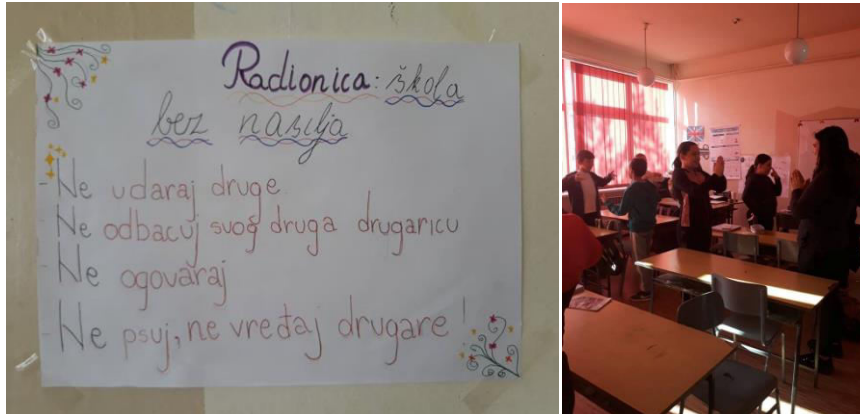 Radionica: škola
bez nasilja
- Ne udaraj druge
- Ne odbacuj svog druga drugaricu
- Ne ogovaraj
- Ne psuj, ne vređaj drugare!